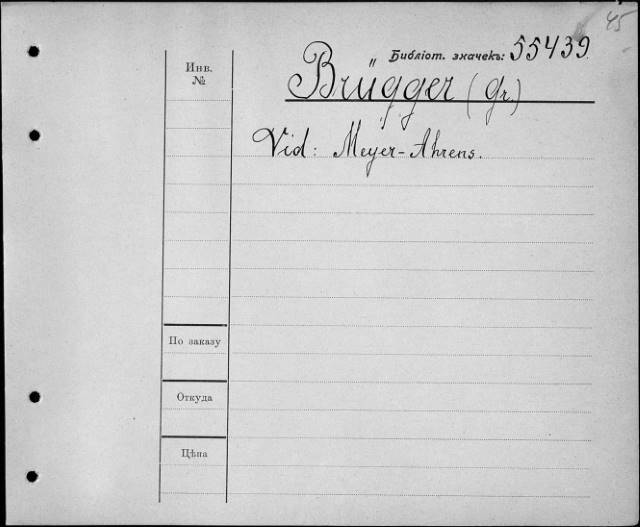 45
Библіот. значекъ: 55439.
Инв.
№
Brügger (Gr.)
Vid: Meyer-Ahrens.
По заказу
Откуда
Цѣна